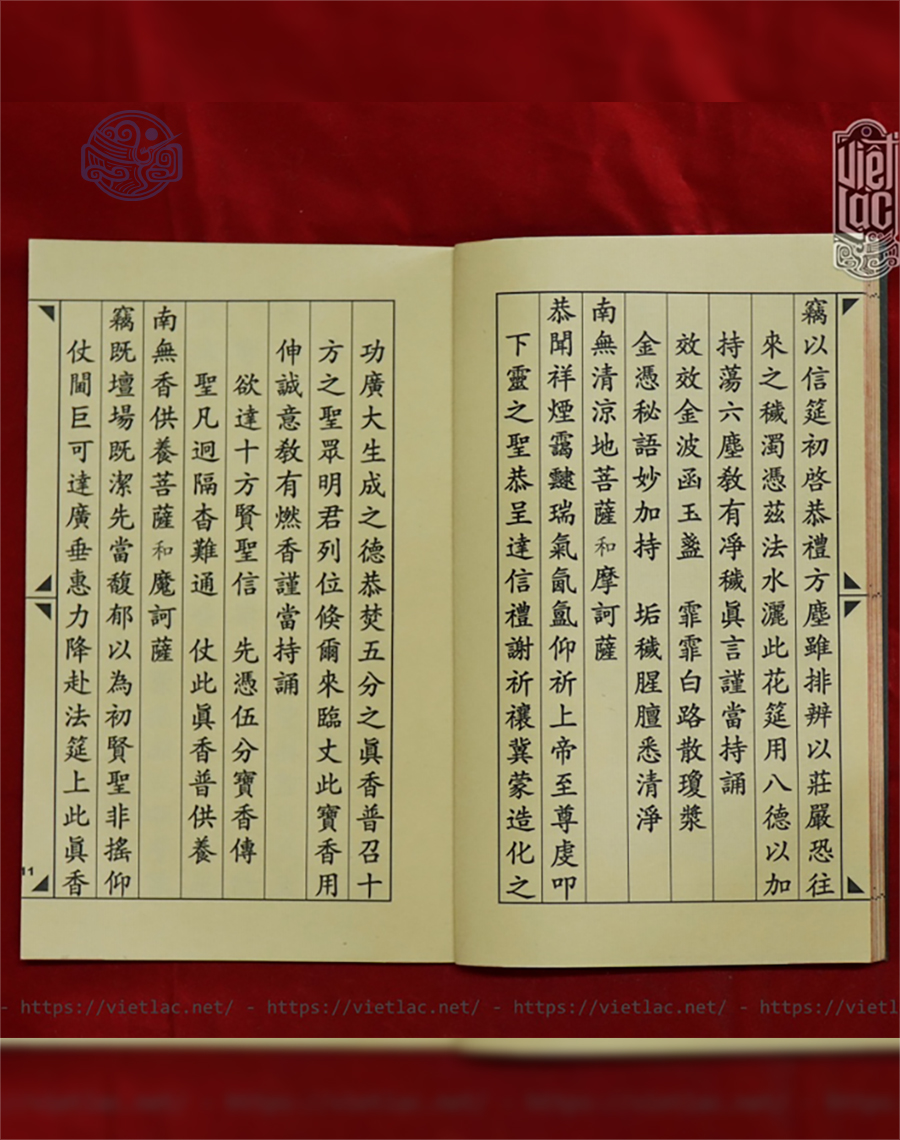 竊以信筵初啓恭禮方塵雖排辨以莊嚴恐往
來之穢濁憑茲法水灑此花筵用八德以加
持蕩六塵教有淨穢眞言謹當持誦
效效金波函玉盞 霏霏白路散瓊漿
金憑秘語妙加持 垢穢腥膻悉清淨
南無清涼地菩薩和摩訶薩
恭聞祥煙靄靆瑞氣氤氳仰祈上帝至尊虔叩
下靈之聖恭呈達信禮謝祈禳冀蒙造化之
功廣大生成之德恭焚五分之眞香普召十
方之聖眾明君列位倏爾來臨丈此寶香用
伸誠意教有燃香謹當持誦
欲達十方賢聖信 先憑伍分寶香傳
聖凡迥隔杳難通 仗此眞香普供養
南無香供養菩薩和魔訶薩
竊既壇場既潔先當馥郁以為初賢聖非搖仰
仗閫巨可達廣垂惠力降赴法筵上此眞香
11
Việt Lạc
- https://vietlac.net/ - https://vietlac.net/ - https://vietlac.net/ - https://vietlac.net/